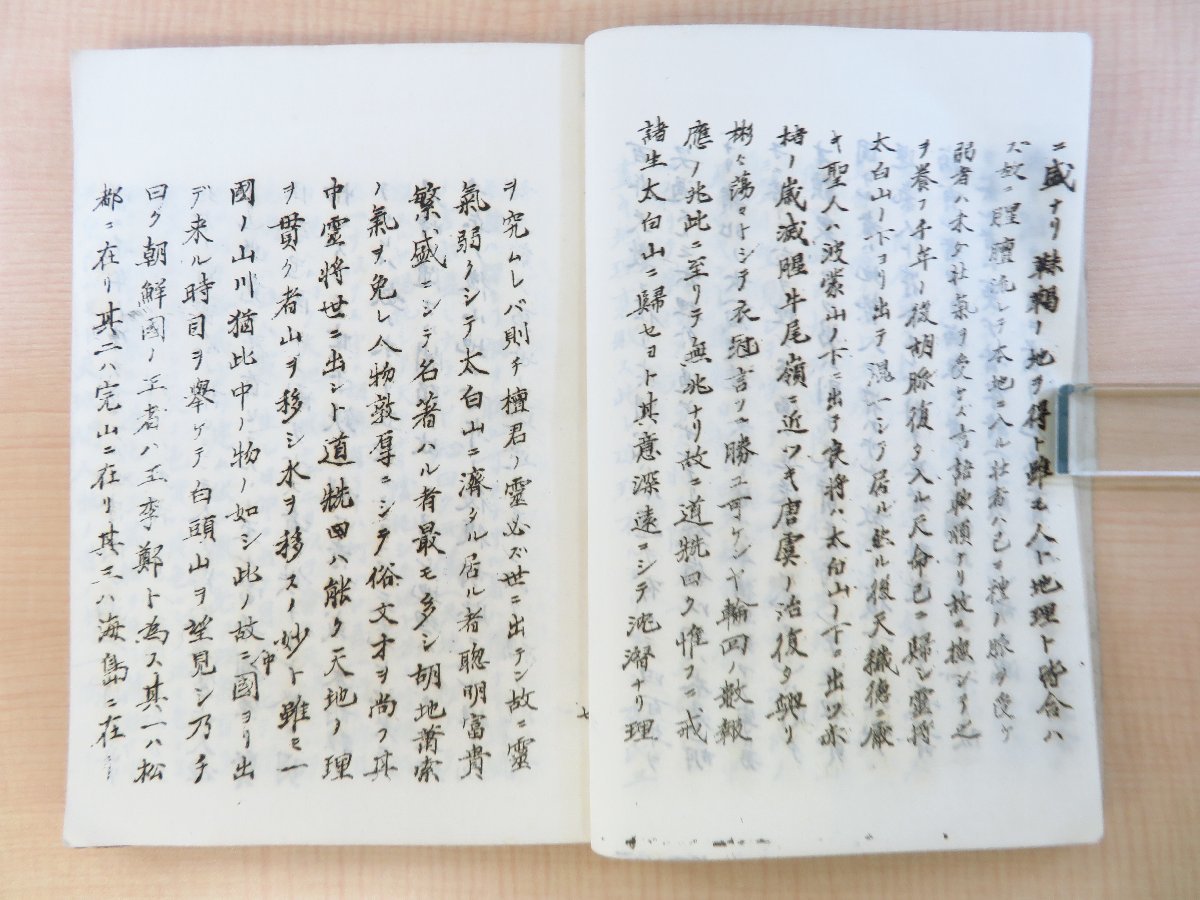 ニ盛ナリ靺鞨ノ地ヲ得ト雖モ人ト地理ト皆合ハ
ズ故ニ腥膻流レテ本地ニ入ル壮者ハ已ニ禮ノ脈ヲ受ケ
弱者ハ未タ社氣ヲ受ケズ 之
ヲ養フ千年ノ後胡脈復タ入ル天命已ニ歸シ靈将
太白山ノ下ヨリ出テ混一シテ居ル然ル後天徳ニ
キ聖人ハ波蒙山ノ下ニ出テ良将ハ太白山ノ下ニ出ツ亦
ノ歳滅腥牛尾嶺ニ近ツキ唐虞ノ治復タ興リ
彬々蕩々トシテ衣冠言ソニ勝ユ可ケンヤ輪回ノ散報
應ノ兆此ニ至リテ無兆ナリ故ニ道詵曰ク惟フニ戒
諸生太白山ニ歸セヨト其意深遠ニシテ沈潜ナリ理
ヲ究ムレバ則チ檀君ノ靈必ズ世ニ出テン故ニ靈
氣弱クシテ太白山ニ濟タル居ル者聰明富貴
繁盛ニシテ名著ハル者最モ多シ胡地蕭索
ノ氣ヲ免レ人物敦厚ニシテ俗文才ヲ尚フ其
中靈将世ニ出ント道詵曰ハ能ク天地ノ理
ヲ貫ク者山ヲ移シ水ヲ移スノ妙ト雖モ一
國ノ山川猶此中ノ物ノ如シ此ノ故ニ國中ヨリ出
デ来ル時司ヲ擧ケテ白頭山ヲ望見シ乃チ
曰ク朝鮮國ノ王者ハ王李鄭ト為ス其一ハ松
都ニ在リ其二ハ完山ニ在リ其三ハ海島ニ在